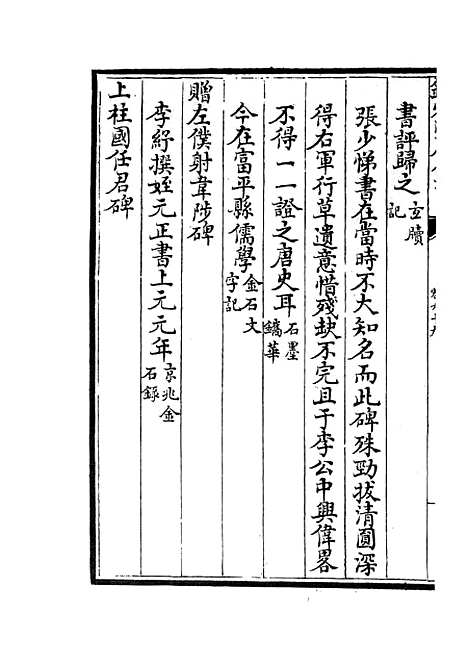 書評歸之玄牘記
張少悌書在當時不大知名而此碑殊勁拔清圓深
得右軍行草遺意惜殘缺不完且于李公中興偉畧
不得一一證之唐史耳石墨鐫華
今在富平縣儒學金石文字記
贈左僕射韋陟碑
李紓撰姪元正書上元元年京兆金石錄
上柱國任君碑